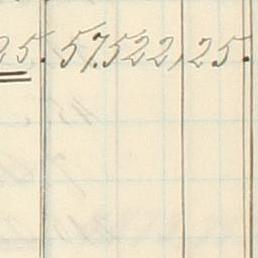 25. 57.522,25.